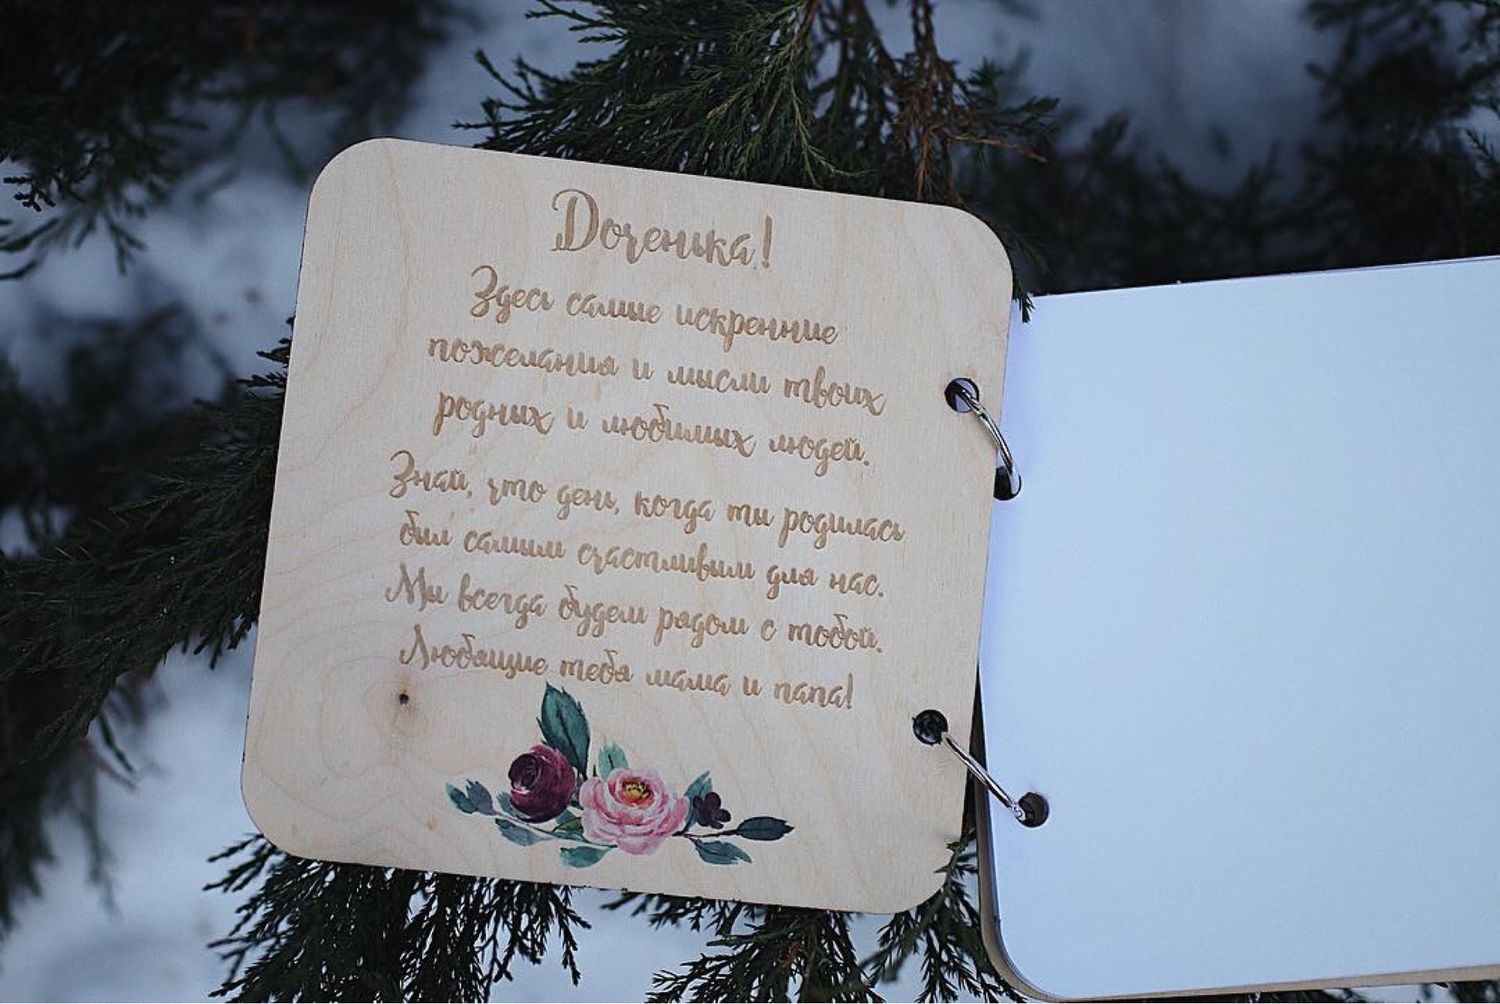 Доченька!
Здесь самые искренние
пожелания и мысли твоих
родных и любимых людей.
Знай, что день, когда ты родилась
был самым счастливым для нас.
Мы всегда будем рядом с тобой.
Любящие тебя мама и папа!